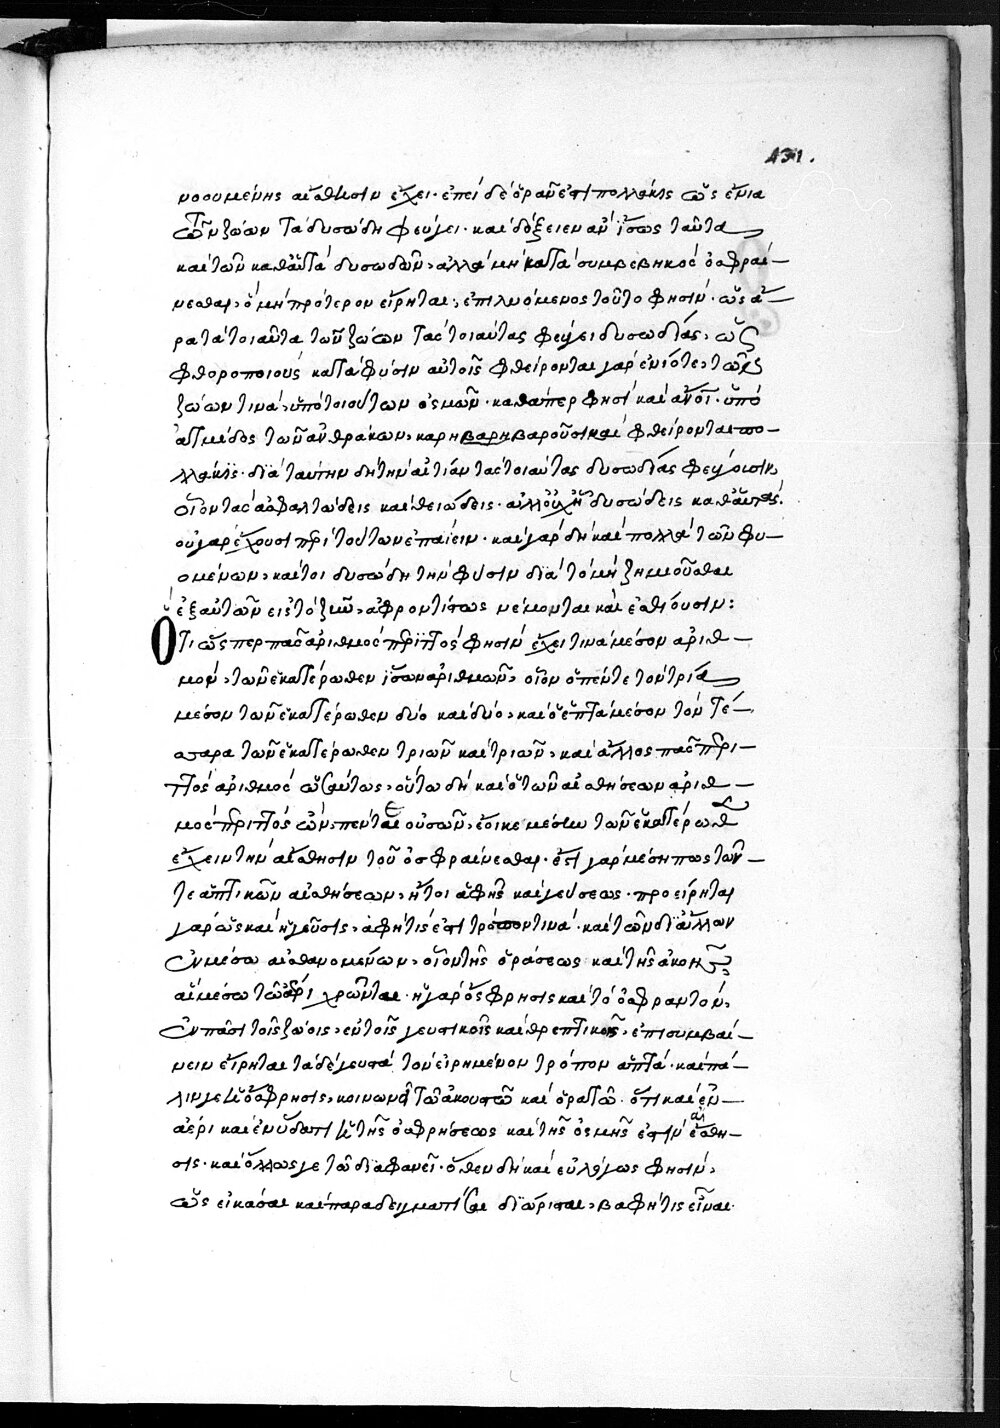 131.
νοουμένης αἴσθησιν ἔχει· ἐπεὶ δὲ ὁρᾶν ἐστι πολλάκις ὡς ἔνια
τῶν ζώων τὰ δυσώδη φεύγει· καὶ δόξειεν ἂν ἴσως ταῦτα
καὶ τῶν καθαυτὰ δυσωδῶν, ἀλλὰ μὴ κατὰ συμβεβηκὸς ὀσφραί-
νεσθαι, ὃ μὴ πρότερον εἴρηται, ἐπιλυόμενος τοῦτο φησὶν· ὡς ἄ-
ρα τὰ τοιαῦτα τῶν ζώων τὰς τοιαύτας φεύγει δυσωδίας, ὡς
φθοροποιοὺς κατὰ φύσιν αὐτοῖς φθείρονται γὰρ ἐνίοτε, τῶν
ζώων τινὰ, ὑπὸ τοιούτων ὀσμῶν· καθάπερ φησὶ καὶ ἄνοι· ὑπὸ
ἀτμίδος τῶν ἀνθράκων, καρηβαρηβαροῦσι καὶ φθείρονται πο-
λλάκις· διὰ ταύτην δὴ τὴν αἰτίαν τὰς τοιαύτας δυσωδίας φεύγουσιν,
οἷον τὰς ἀσφαλτώδεις καὶ θειώδεις· ἀλλ' οὐχ ᾗ δυσώδεις καθ' αὑτάς·
οὐ γὰρ ἔχουσι περὶ τούτων ἐπαΐειν· καὶ γὰρ δὴ καὶ πολλὰ τῶν φυ-
ομένων, καίτοι δυσώδη τὴν φύσιν διὰ τὸ μὴ ζημιοῦσθαι
ἐξ αὐτῶν εἰς τὸ ζῆν, ἀφροντίστως νέμονται καὶ ἐσθίουσιν:
Ὅτι ὥσπερ πᾶς ἀριθμὸς περιττός φησὶν ἔχει τινὰ μέσον ἀριθ-
μὸν, τῶν ἑκατέρωθεν ἴσων ἀριθμῶν, οἷον ὁ πέντε τὸν τρία
μέσον τῶν ἑκατέρωθεν δύο καὶ δύο, καὶ ὁ ἑπτὰ μέσον τὸν τέ-
σσαρα τῶν ἑκατέρωθεν τριῶν καὶ τριῶν, καὶ ἄλλος πᾶς περι-
ττὸς ἀριθμὸς ὡσαύτως, οὕτω δὴ καὶ ὁ τῶν αἰσθήσεων ἀριθ-
μὸς περιττὸς ὢν, πέντε οὐσῶν, ἔοικε μέσην τῶν ἑκατέρωθ
ἔχειν τὴν αἴσθησιν τοῦ ὀσφραίνεσθαι· ἔστι γὰρ μέση πως τῶν-
τε ἁπτικῶν αἰσθήσεων, ἤτοι ἁφῆς καὶ γεύσεως· προείρηται
γὰρ ὡς καὶ ἡ γεῦσις, ἁφή τίς ἐστι τρόπον τινά· καὶ τῶν δι' ἄλλων
ἐν μέσω αἰσθανομένων, οἷον τῆς ὁράσεως καὶ τῆς ἀκοῆς,
αἳ μέσω τῶ ἀέρι χρῶνται· ἡ γὰρ ὄσφρησις καὶ τὸ ὀσφραντὸν,
ἐν πᾶσι τοῖς ζώοις, ἐν τοῖς γευστικοῖς καὶ θρεπτικοῖς, ἐπισυμβαί-
νειν εἴρηται τὰ δὲ γευστὰ τὸν εἰρημένον τρόπον ἁπτὰ· καὶ πά-
λιν γε ἡ ὄσφρησις, κοινωνεῖ τῶ ἀκουστῶ καὶ ὁρατῶ· ὅτι καὶ ἐν-
ἀέρι καὶ ἐν ὕδατι ἡ τῆς ὀσφρήσεως καὶ τῆς ὀσμῆς ἐστὶν αἴσθη-
σις· καὶ ὅλως γε τῶ διαφανεῖ· ὅθεν δὴ καὶ εὐλόγως φησὶν,
ὡς εἰκάσαι καὶ παραδειγματίσαι διώρισται, βαφή τις εἶναι·